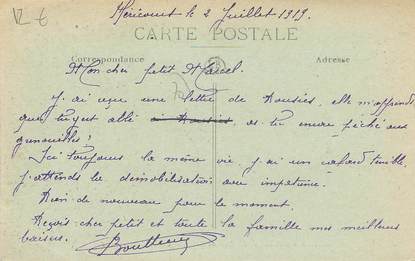 Héricourt le 2 Juillet 1919.
CARTE POSTALE
Correspondance
Adresse
Mon cher petit Marcel.
J'ai reçu une lettre de Housies, elle m'apprend
que tu yest allé as-tu encore pêché aux
grenouilles?
Ici toujours la même vie j'ai un cafard terrible
j'attends la démobilisation avec impatience.
Rien de nouveau pour le moment.
Reçois cher petit et toute la famille mes meilleurs
baisers.